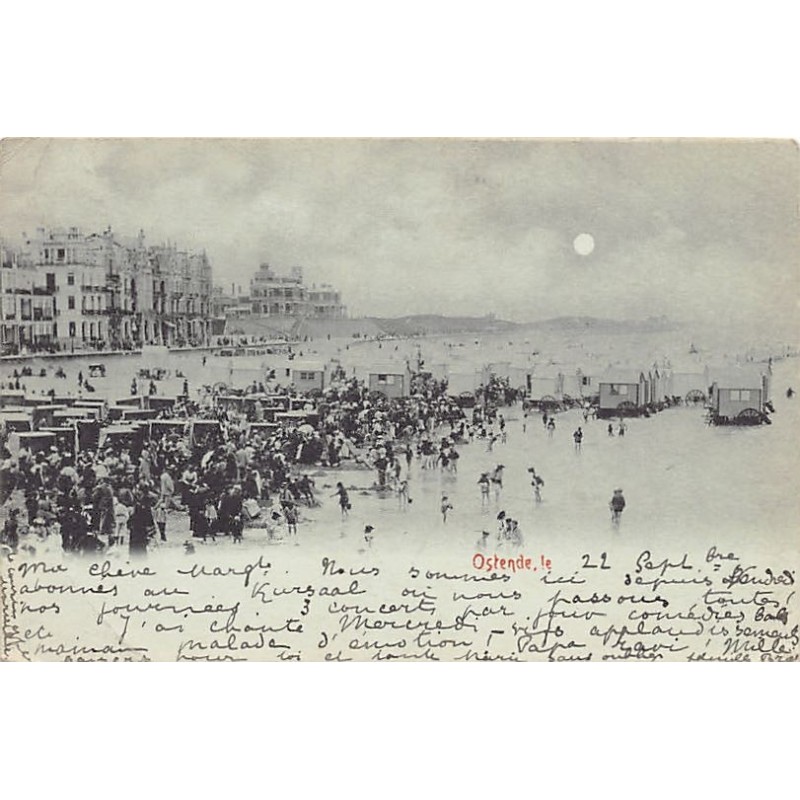 Ostende, le 22 Sept bre
Ma chère Margte. Nous sommes ici depuis Vendredi
abonnés au Kursaal où nous passons toutes
nos journées, 3 concerts par jour comédies bals
etc J'ai chanté Mercredi – vifs applaudissements
maman malade d'émotion – Papa ravi! Mille
baisers pour toi et tante Marie sans oublier